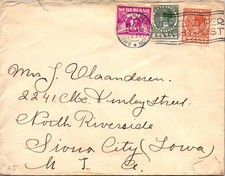 NEDERLAND
Mrs J. Vlaanderen.
2241 Mc. Kinley Street
North Riverside
Sioux City (Iowa)